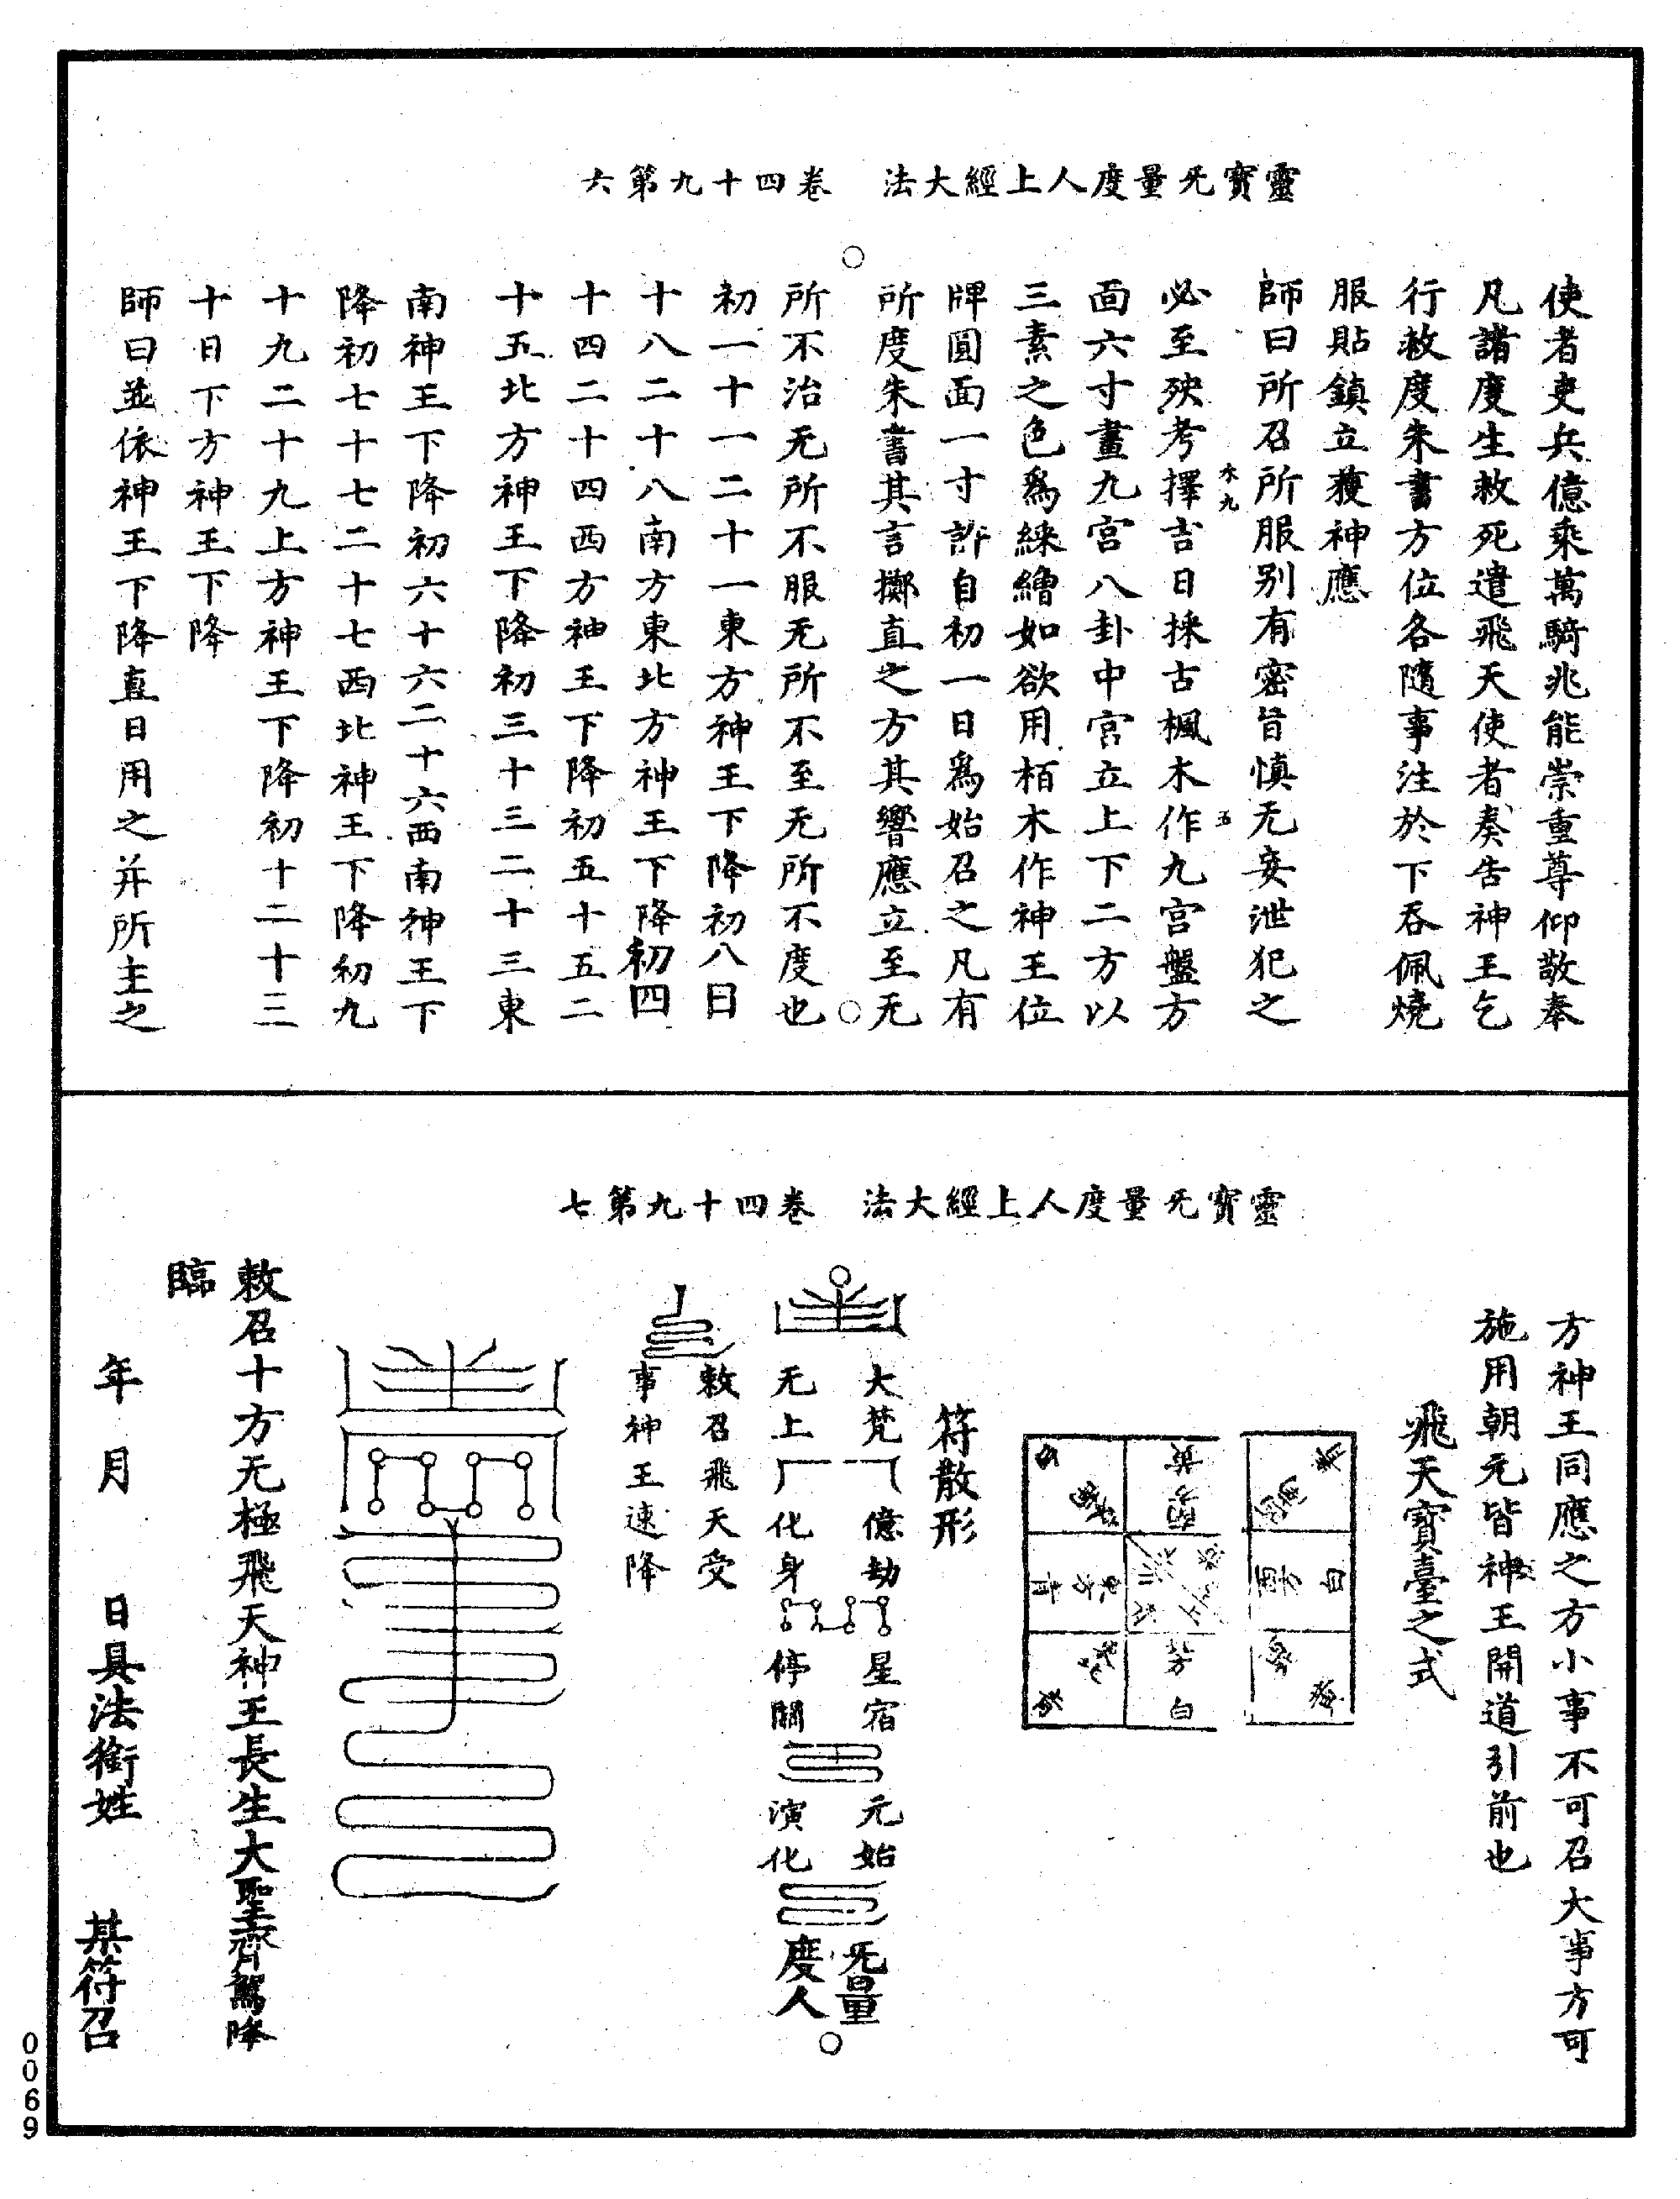 靈寶旡量度人上經大法　卷四十九第六
使者吏兵億乘萬騎兆能崇重尊仰敬奉
凡諸度生救死遣飛天使者奏告神王乞
行救度朱書方位各隨事注於下吞佩燒
服貼鎮立獲神應
師曰所召所服別有密旨慎无妄泄犯之
必至殃考擇吉日採古楓木作九宮盤方
面六寸畫九宮八卦中宮立上下二方以
三素之色為綵繒如欲用栢木作神王位
牌圓面一寸許自初一日為始召之凡有
所度朱書其言擲直之方其響應立至无
所不治无所不服无所不至无所不度也
初一十一二十一東方神王下降初八日
十八二十八南方東北方神王下降初四
十四二十四西方神王下降初五十五二
十五北方神王下降初三十三二十三東
南神王下降初六十六二十六西南神王下
降初七十七二十七西北神王下降初九
十九二十九上方神王下降初十二十三
十日下方神王下降
師曰並依神王下降直日用之并所主之
木九
五
靈寶旡量度人上經大法　卷四十九第七
方神王同應之方小事不可召大事方可
施用朝元皆神王開道引前也
飛天寶臺之式
白
白
符散形
大梵
億劫
星宿
元始
旡量
无上
化身
停關
演化
度人
敕召飛天受
事神王速降
敕召十方无極飛天神王長生大聖齊駕降
臨
年　月　日具法銜姓　某符召
0069